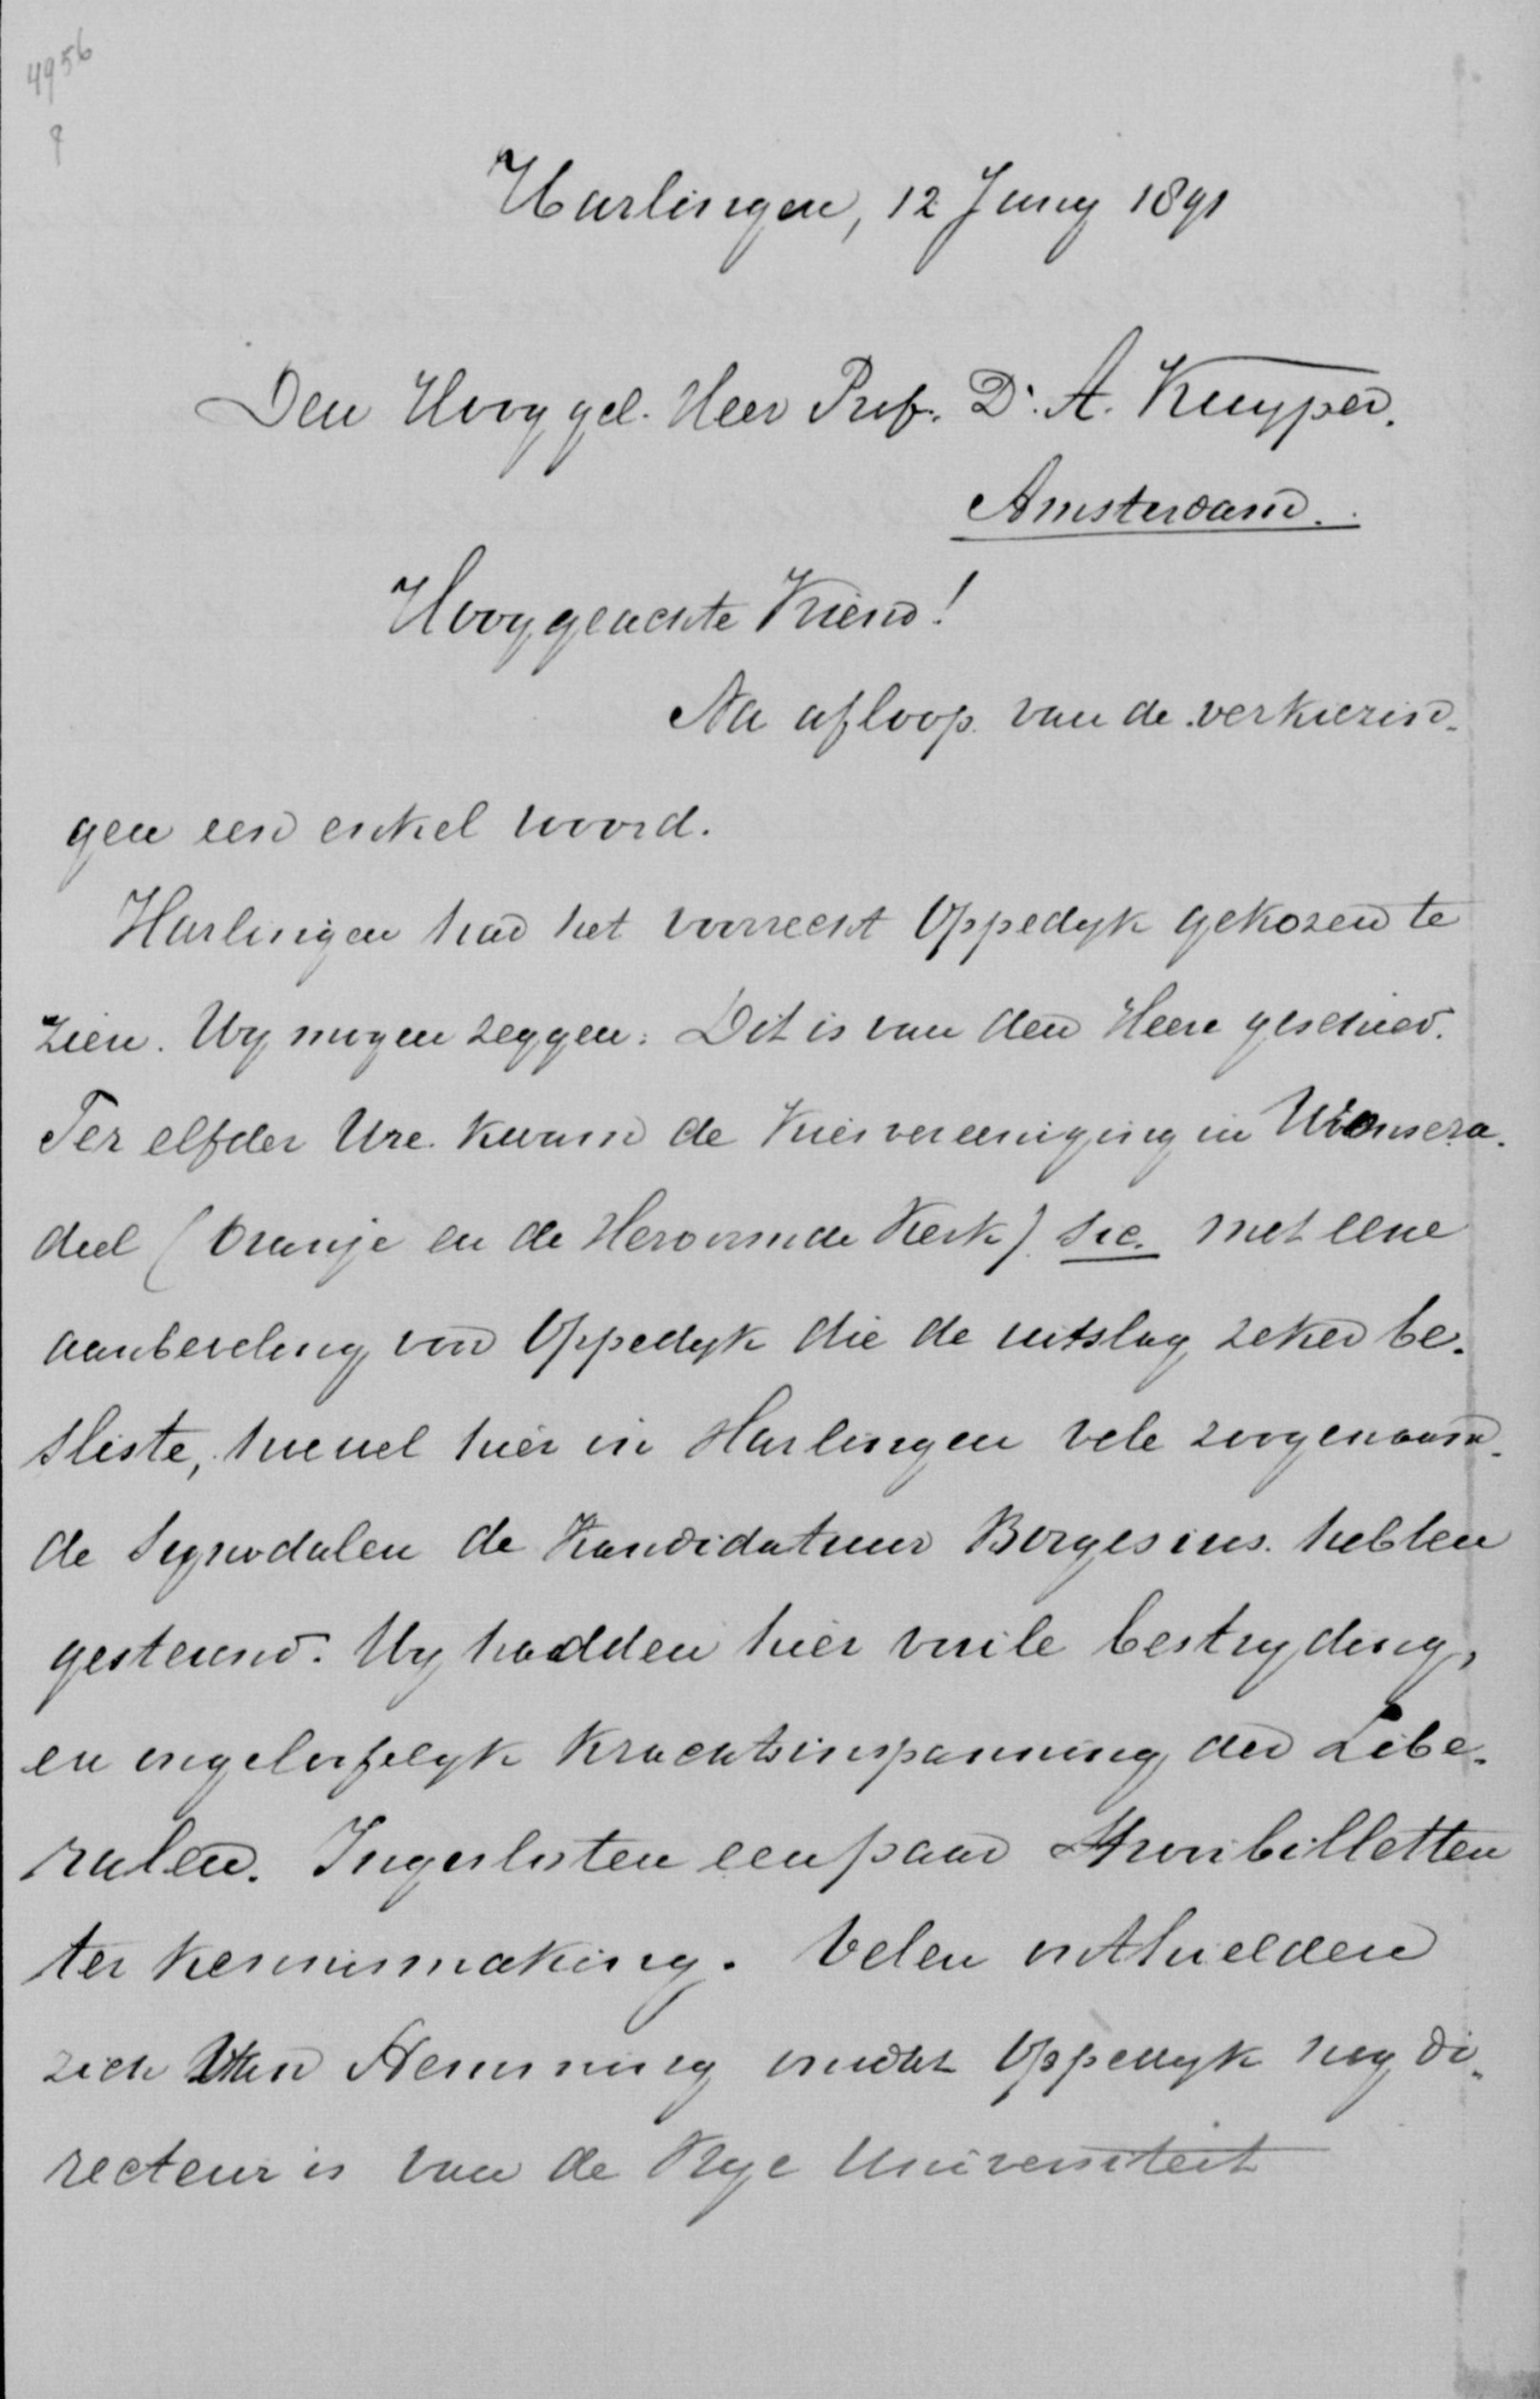 4956
Harlingen, 12 Juny 1891
Den Hooggel. Heer Prof. Dr. A. Kuyper.
Amsterdam.
Hooggeachte Vriend!
Na afloop van de verkiezin-
gen een enkel woord.
Harlingen had het voorrecht Oppedyk gekozen te
zien. Wy mogen zeggen: Dit is van den Heere geschied.
Ter elfder Ure kwam de Kiesvereeniging in Wonsera-
deel (Oranje en de Hervormde Kerk) sic. met eene
aanbeveling van Oppedyk die de uitslag zeker be-
sliste, hoewel hier in Harlingen vele zoogenaam-
de Synodalen de Kandidatuur Borgesius hebben
gesteund. Wy hadden hier vuile bestryding,
en ongelooflyk krachtsinspanning der Libe-
ralen. Ingesloten een paar strooibilletten
ter kennismaking. Velen onthielden
zich van stemming omdat Oppedyk nog di-
recteur is van de Vrye Universiteit